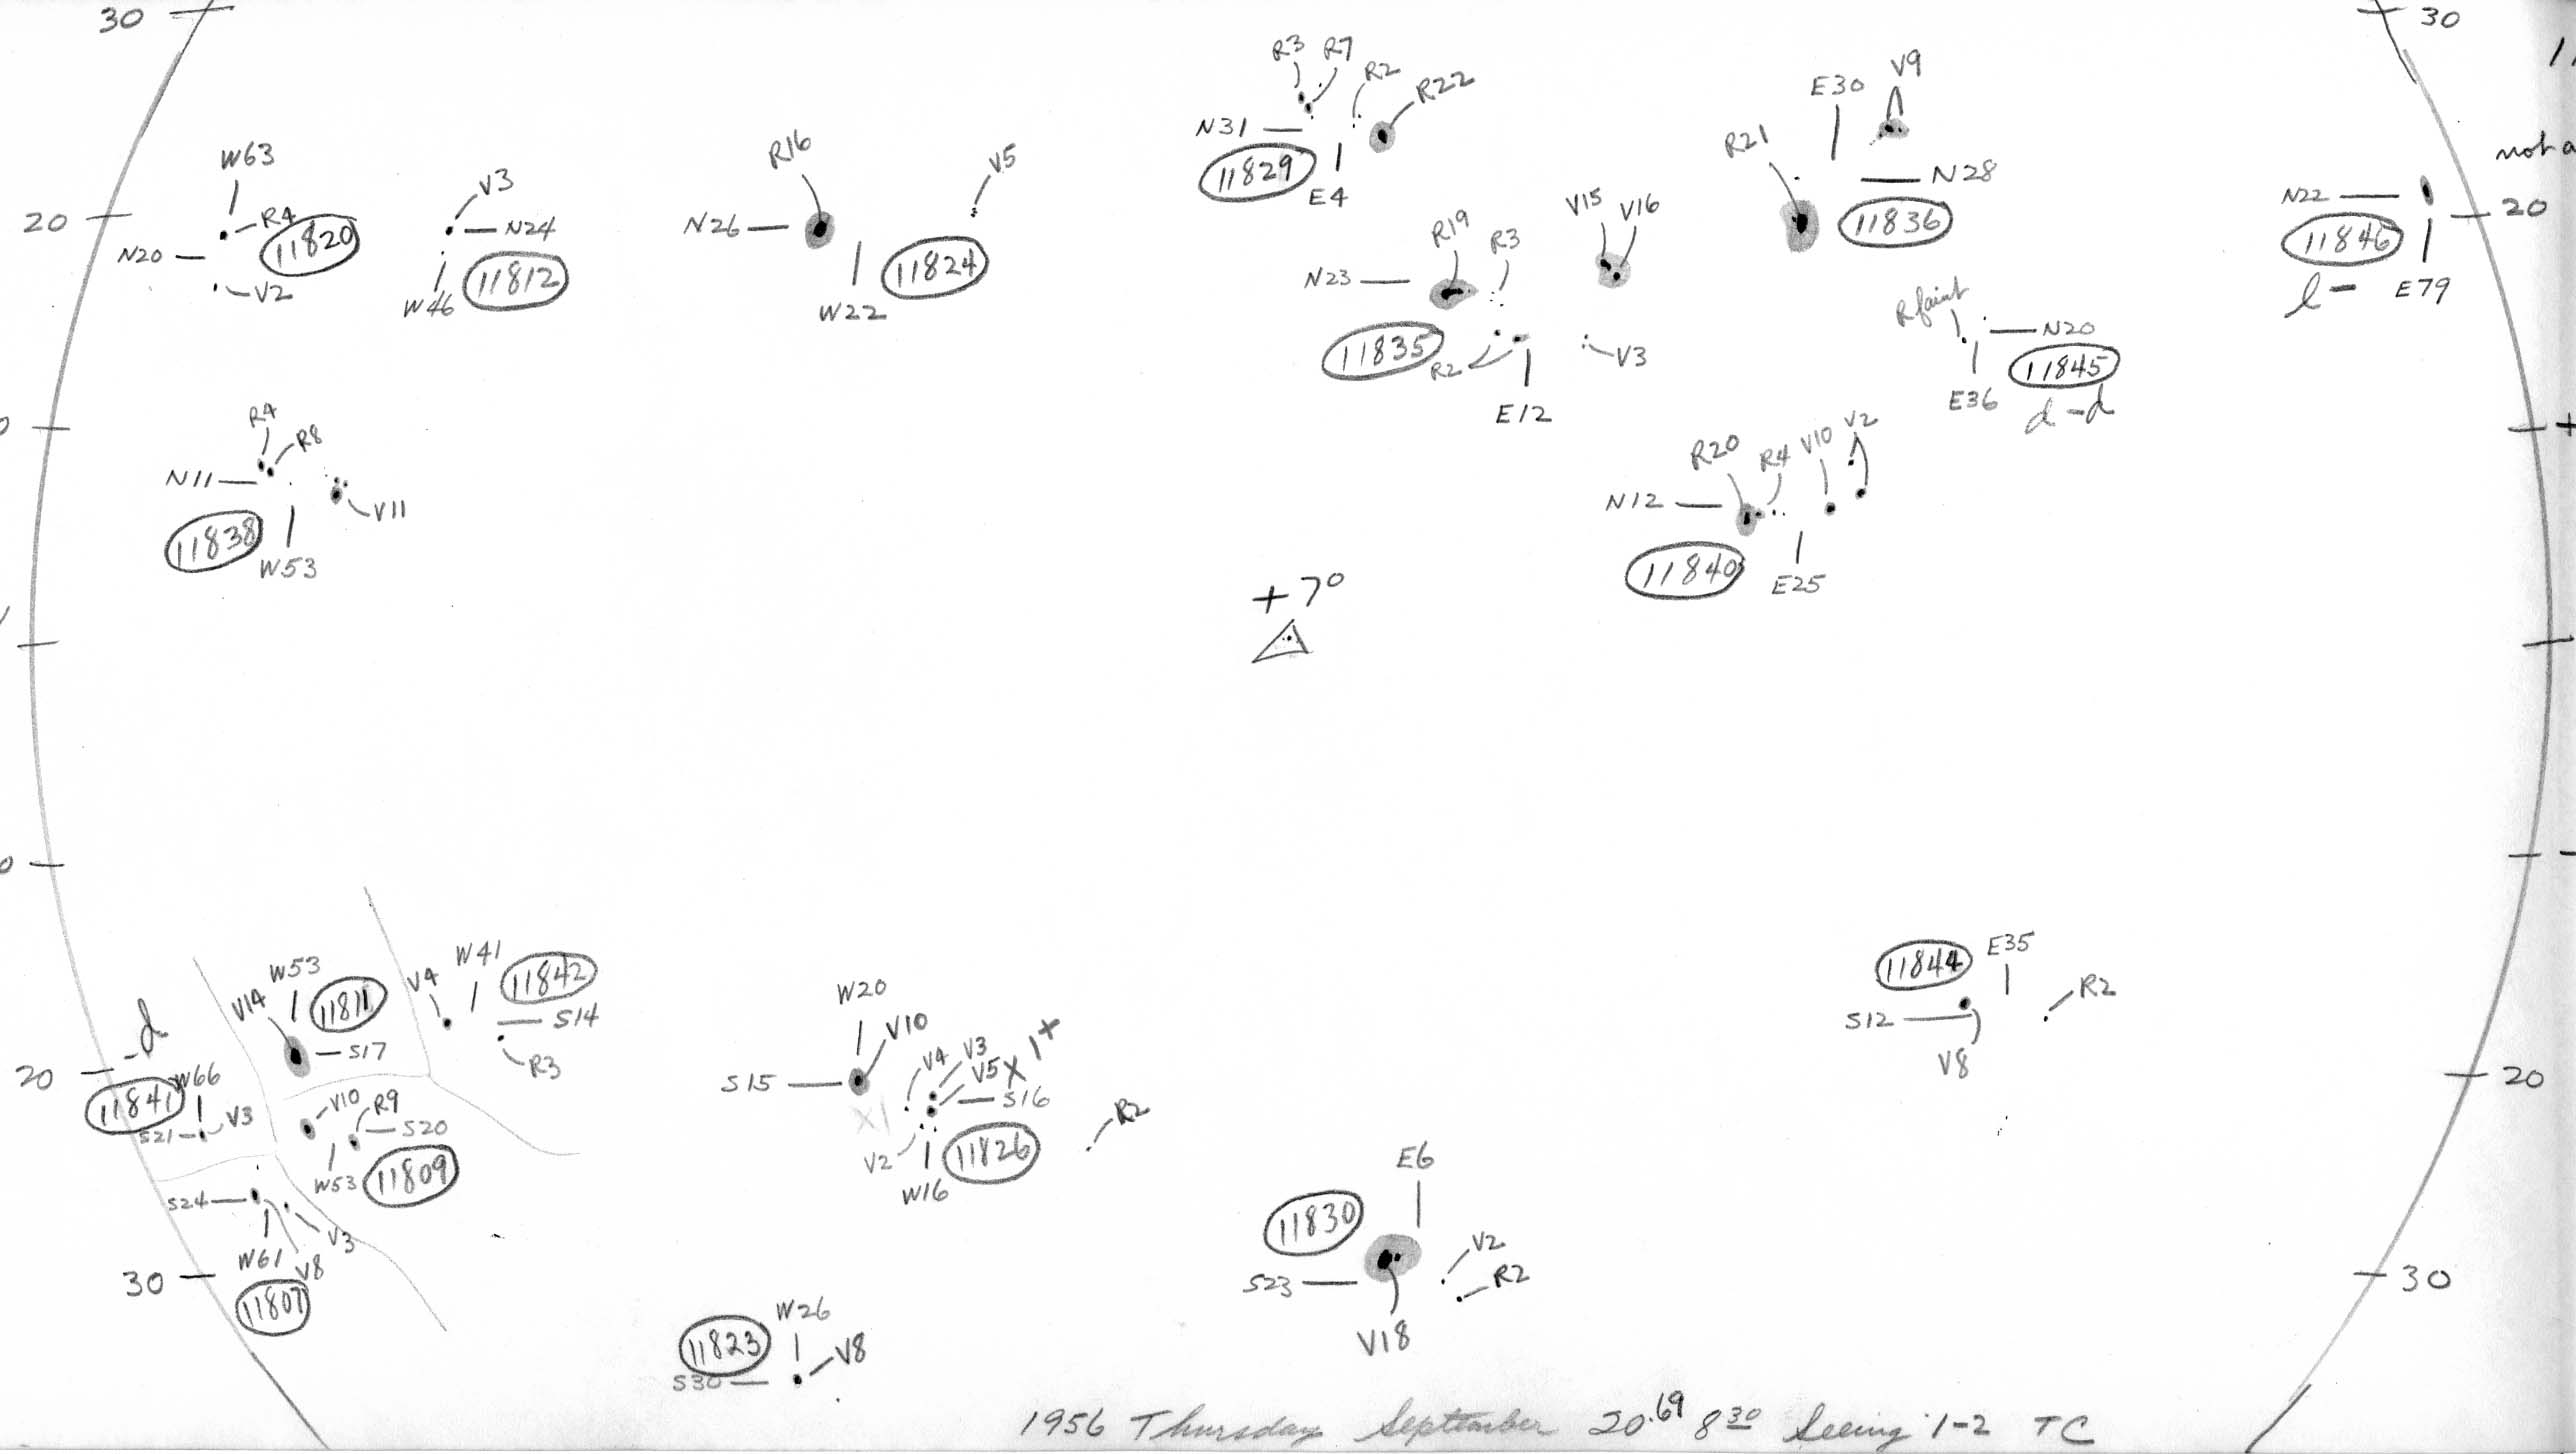 30
30
R3 R7
R2
R22
N31
11829
E4
E30
V9
R21
N28
11836
not a
W63
R4
11820
20
N20
V2
V3
N24
W46
11812
R16
N26
W22
11824
V5
N22
20
11846
l -
E79
R19
R3
V15
V16
N23
11835
R2
V3
E12
R faint
N20
11845
E36
d - d
R4
R8
N11
V11
11838
W53
R20
R4
V10
V2
N12
11840
E25
+
+7°
W53
11811
V14
S17
V4
W41
11842
S14
R3
-d
20
11841
W66
V3
S21
V10
R9
S20
W53
11809
S24
V3
W61
V8
11807
30
W20
V10
S15
V4
V3
V5
X 1+
X1
S16
V2
11826
W16
R2
11844
E35
S12
R2
V8
20
E6
11830
V2
R2
S23
V18
30
11823
W26
V8
S30
1956 Thursday September 20.69 8 30 Seeing 1-2 TC